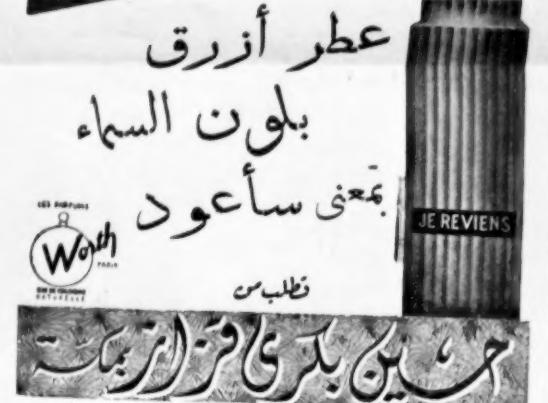 عطر أزرق
بلون السماء
بمعنى سأعود
JE REVIENS
LES PARFUMS
Worth
PARIS
EAU DE COLOGNE
NATURELLE
تطلب من
حسين بكرى قزاز بمكة